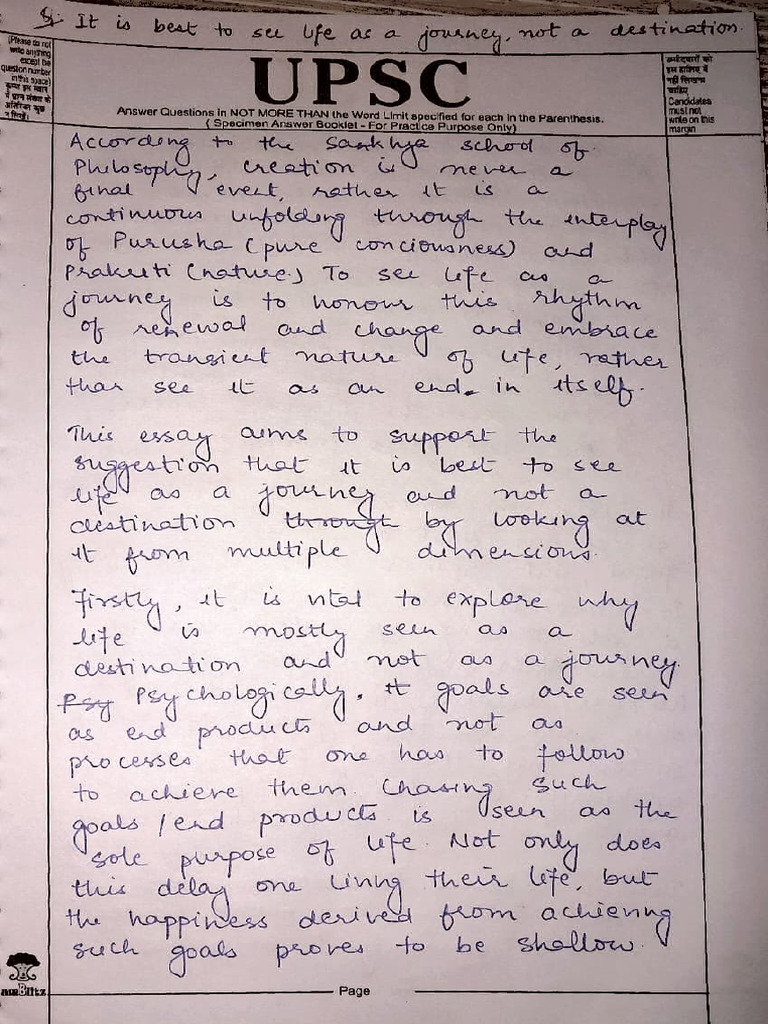 Q. It is best to see life as a journey, not a destination.
(Please do not
write anything
except the
question number
in this space)
UPSC
Answer Questions in NOT MORE THAN the Word Limit specified for each in the Parenthesis.
( Specimen Answer Booklet - For Practice Purpose Only)
उम्मीदवारों को
इस हाशिए में
नहीं लिखना
चाहिए
Candidates
must not
write on this
margin
According to the Sankhya school of
Philosophy, creation is never a
final event, rather it is a
continuous unfolding through the interplay
of Purusha (pure conciousness) and
Prakriti (nature.) To see life as a
journey is to honour this rhythm
of renewal and change and embrace
the transient nature of life, rather
than see it as an end in itself.
This essay aims to support the
suggestion that it is best to see
life as a journey and not a
destination through by looking at
it from multiple dimensions.
Firstly, it is vital to explore why
life is mostly seen as a
destination and not as a journey.
Psy Psychologically, goals are seen
as end products and not as
processes that one has to follow
to achieve them. Chasing such
goals / end products is seen as the
sole purpose of life. Not only does
this delay one living their life, but
the happiness derived from achieving
such goals proves to be shallow.
Page